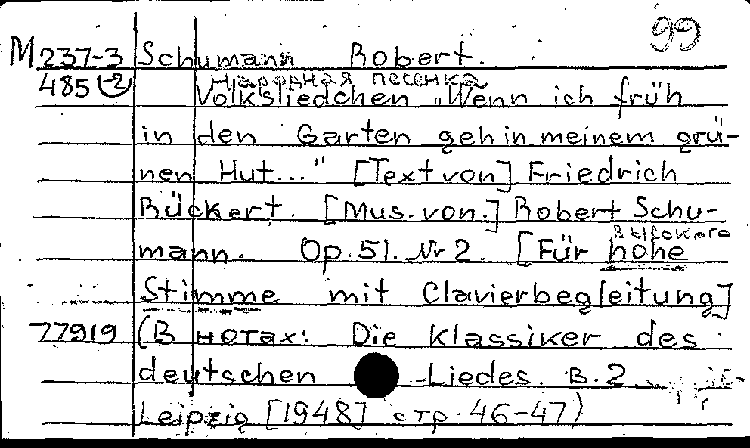 99
М 237-3 Schumann Robert.
485(2) Народная песенка
Volksliedchen „Wenn ich früh
in den Garten geh in meinem grü-
nen Hut..." [Text von] Friedrich
Rückert. [Mus. von.] Robert Schu-
высокого
mann. Op. 51. Nr 2. [Für hohe
Stimme mit Clavierbegleitung]
77919 (В нотах: Die Klassiker des
deutschen -Liedes. B. 2
Leipzig [1948] стр. 46-47)